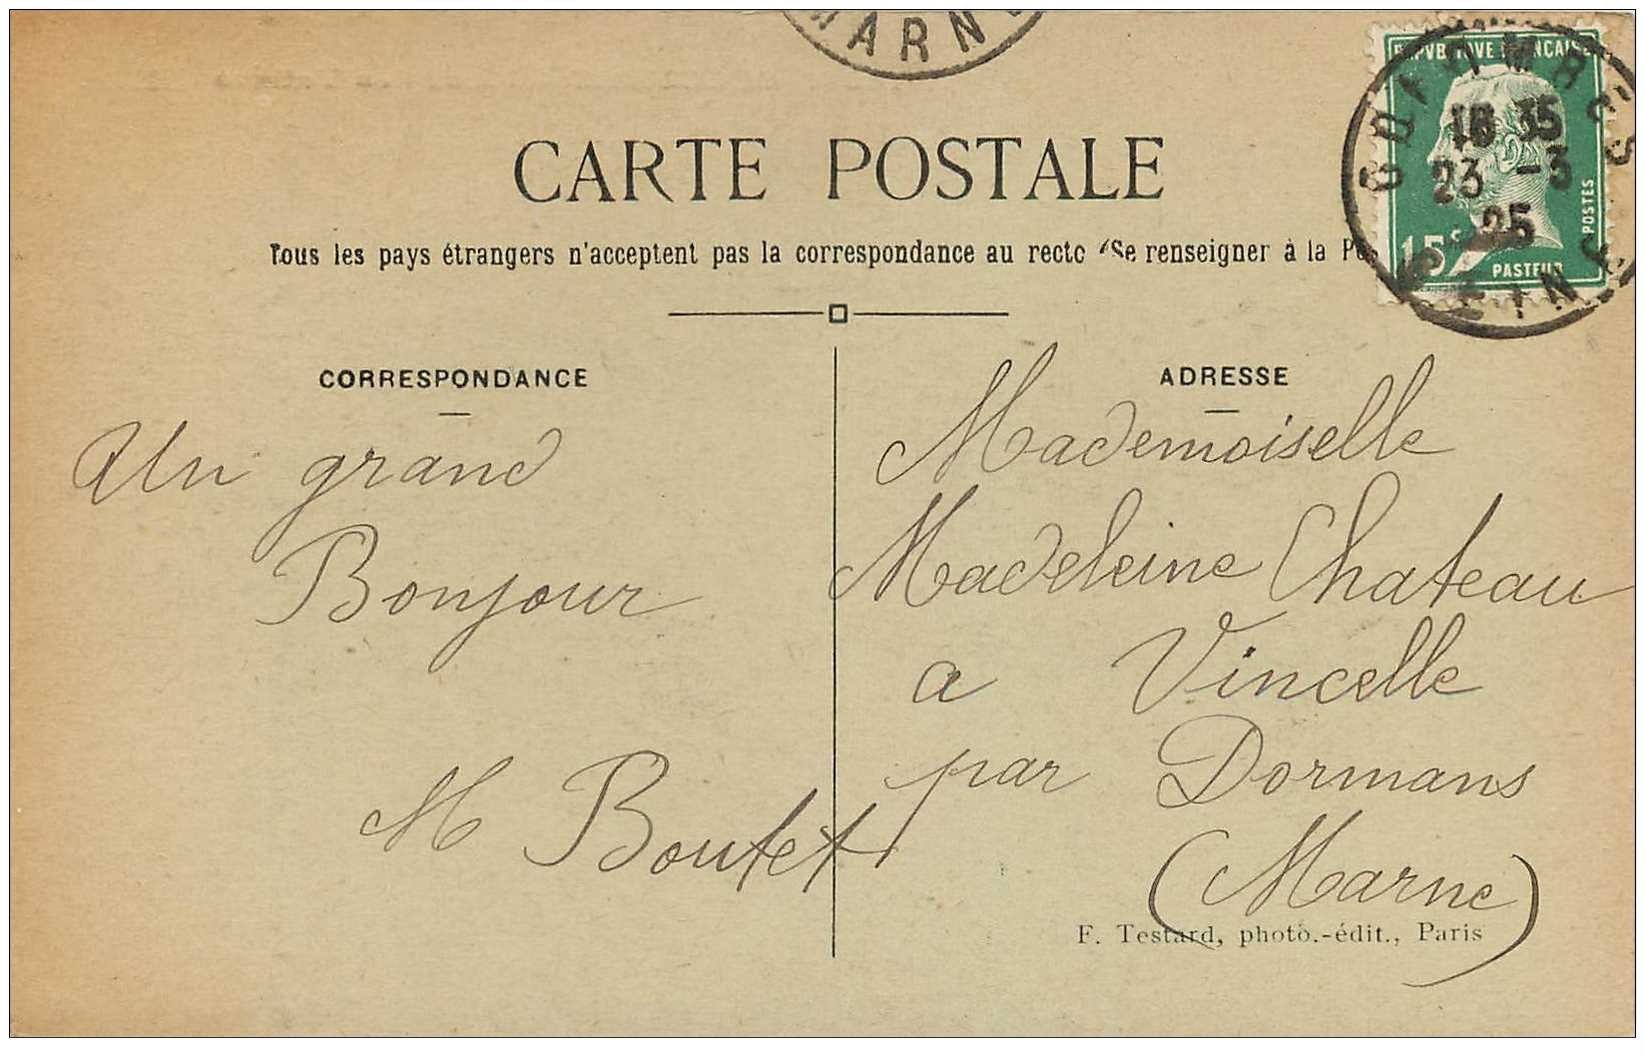 MARN
REPVBLIQVE FRANÇAISE
16 35
23 -3
25
15c
POSTES
PASTEUR
CARTE POSTALE
Tous les pays étrangers n'acceptent pas la correspondance au recto (Se renseigner à la Pos
CORRESPONDANCE
Un grand
Bonjour
M Boutet
ADRESSE
Mademoiselle
Madeleine Chateau
a Vincelle
par Dormans
(Marne)
F. Testard, photo.-édit., Paris